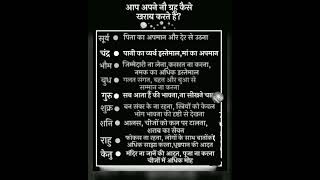 आप अपने नौ ग्रह कैसे
खराब करते हैं?
सूर्य पिता का अपमान और देर से उठना
चंद्र पानी का व्यर्थ इस्तेमाल,मां का अपमान
भौम जिम्मेदारी ना लेना,कसरत ना करना,
नमक का अधिक इस्तेमाल
बुध गलत संगत, बहन और बुआ से
सम्मान ना करना
गुरु सब आता हैं की भावना,ना सीखने
शुक्र बन संवर के ना रहना, स्त्रियों को केवल
भोग भावना की दृष्टी से देखना
शनि आलस, चीजों को कल पर टालना,
शराब का सेवन
राहु फोकस ना रहना, लोगों के साथ
अधिक साझा करना,धूम्रपान की आदत
केतु मंदिर ना जानें की आदत, पूजा ना करना
चीजों में अधिक मोह